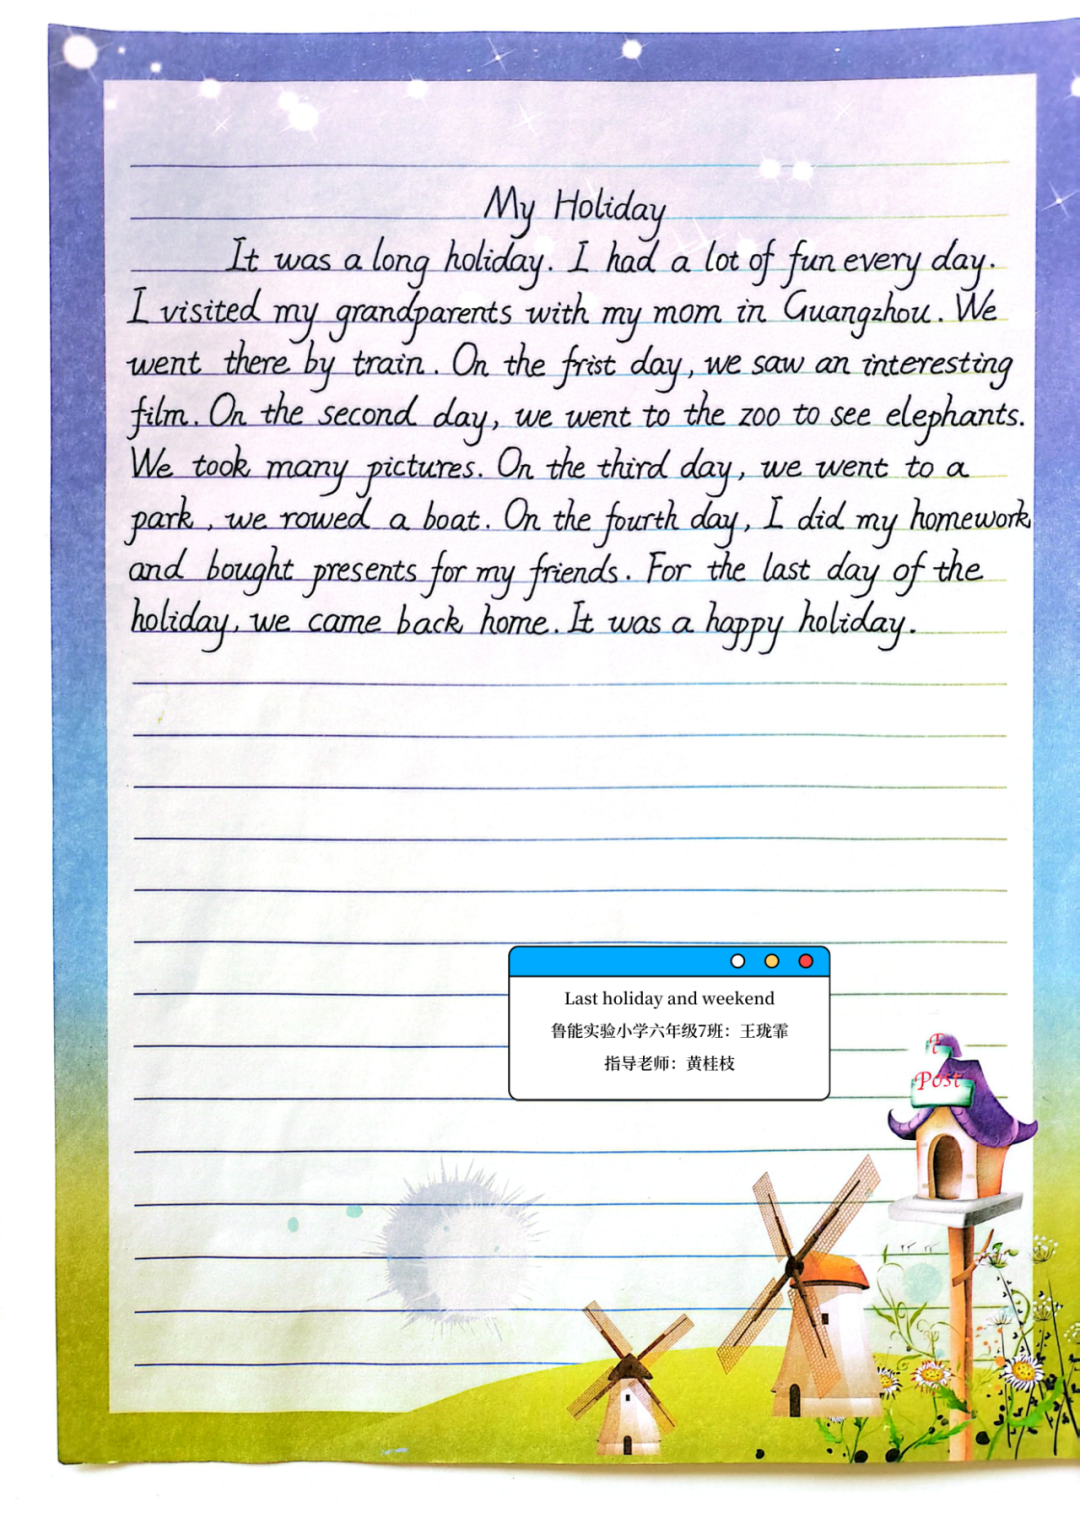 My Holiday
It was a long holiday. I had a lot of fun every day.
I visited my grandparents with my mom in Guangzhou. We
went there by train. On the frist day, we saw an interesting
film. On the second day, we went to the zoo to see elephants.
We took many pictures. On the third day, we went to a
park, we rowed a boat. On the fourth day, I did my homework
and bought presents for my friends. For the last day of the
holiday, we came back home. It was a happy holiday.
Last holiday and weekend
鲁能实验小学六年级7班：王珑霏
指导老师：黄桂枝
Post